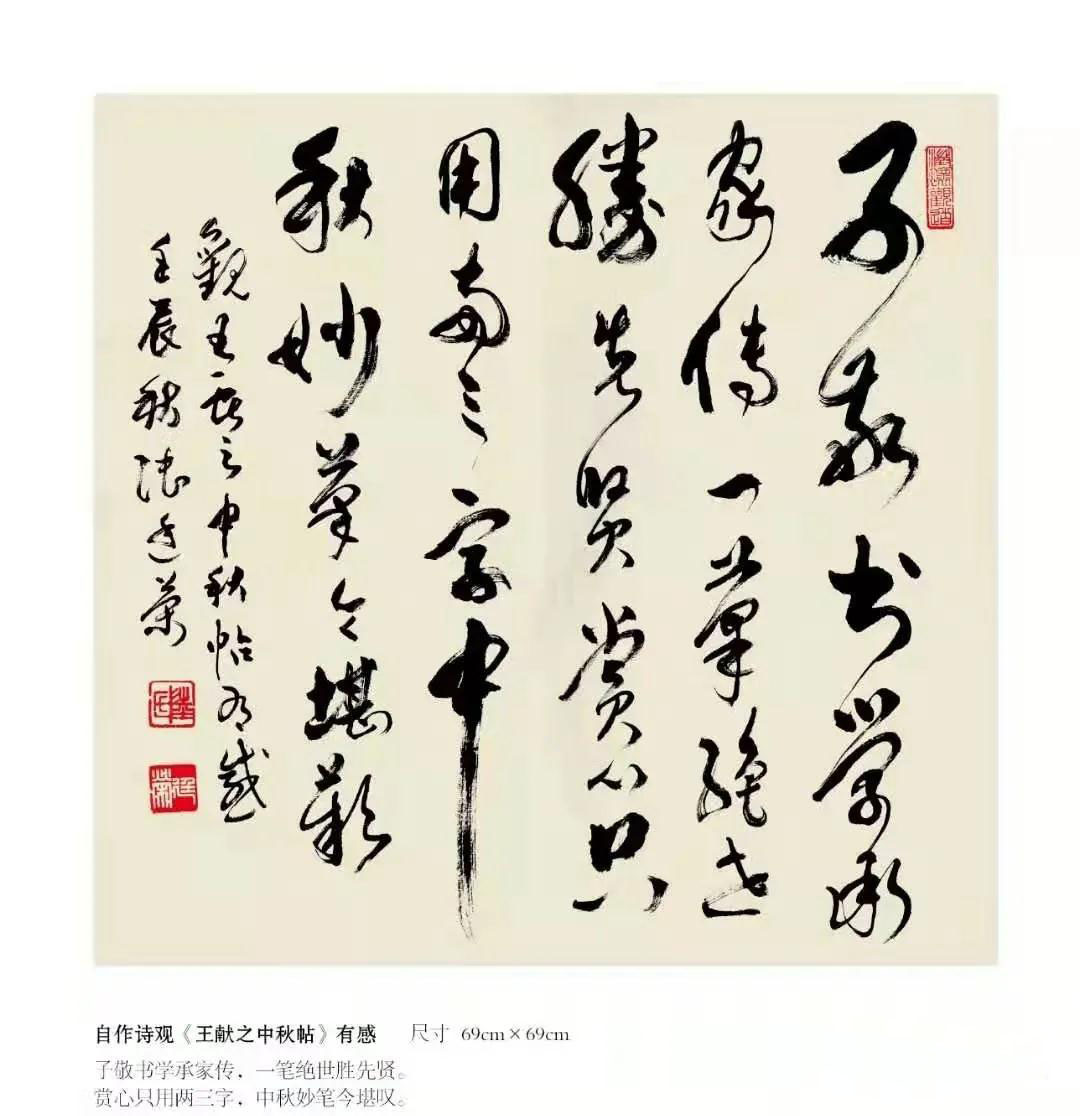 子敬书学承
家傳一筆絕世
勝先賢賞心只
用兩三字中
秋妙筆今堪歎
觀王獻之中秋帖有感
壬辰秋陆廷荣
自作诗观《王献之中秋帖》有感 尺寸 69cm×69cm
子敬书学承家传，一笔绝世胜先贤。
赏心只用两三字，中秋妙笔今堪叹。